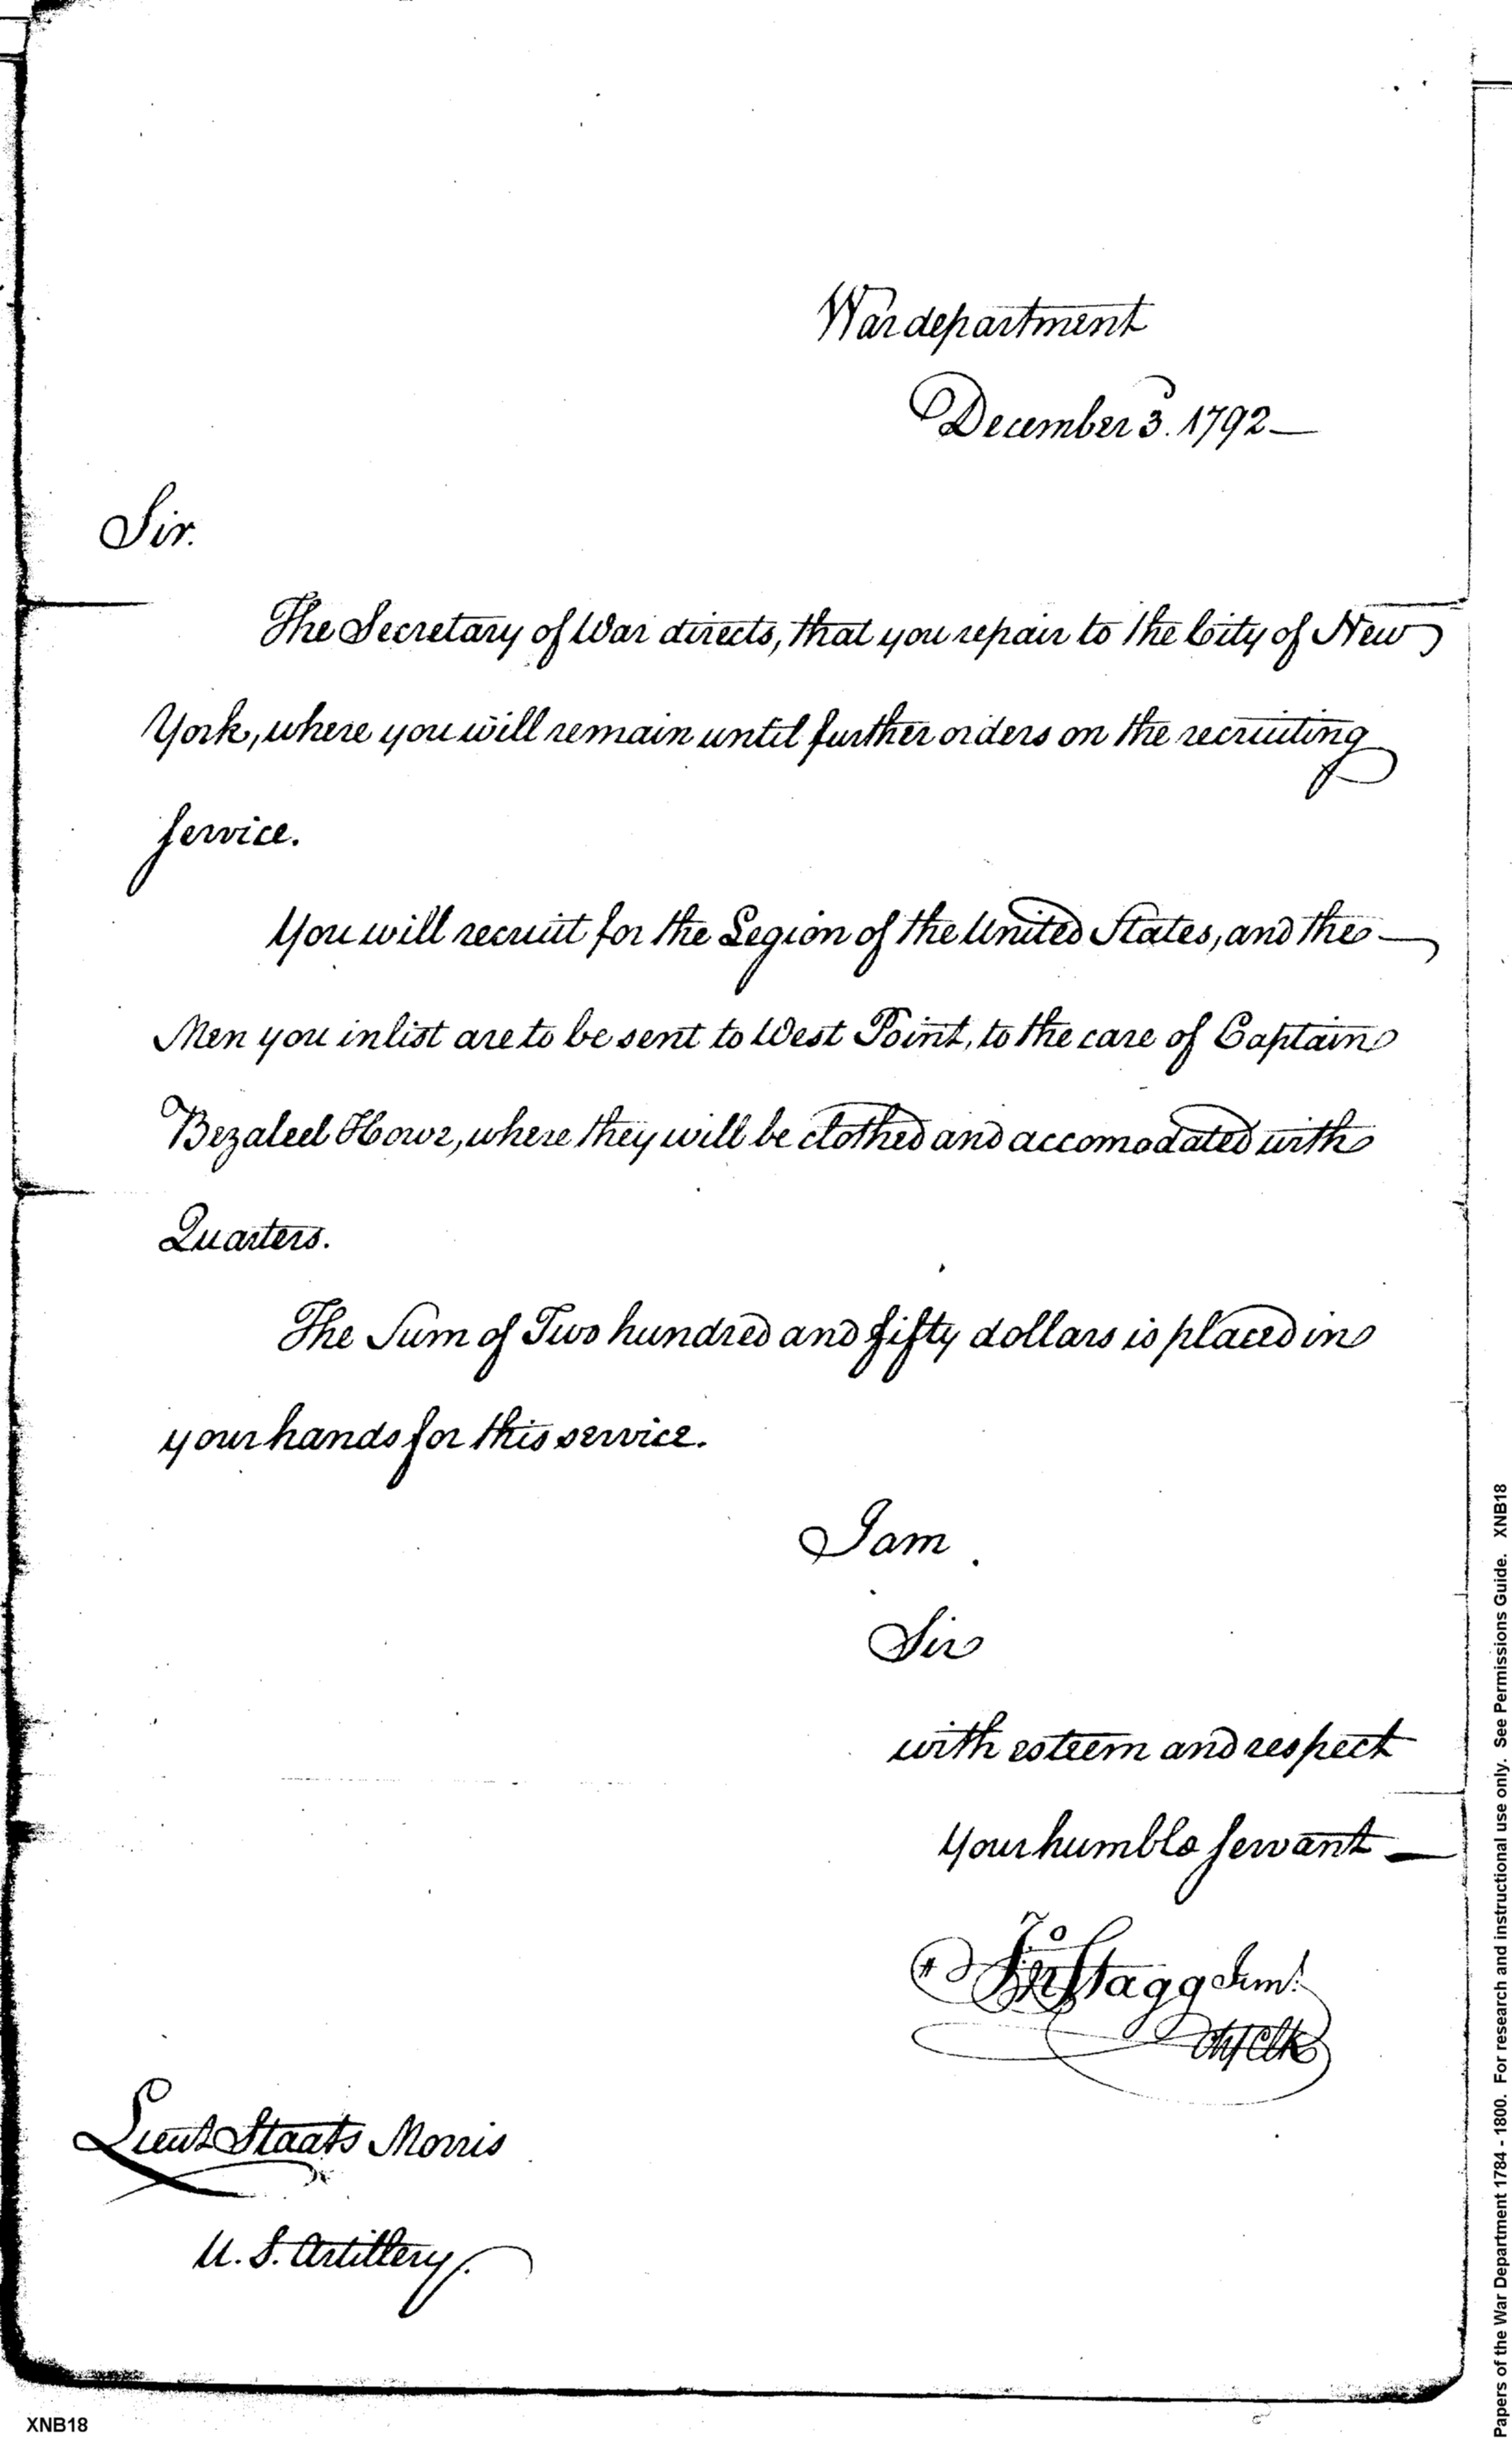 War department
December 3. 1792
Sir.
The Secretary of War directs, that you repair to the City of New
York, where you will remain until further orders on the recruiting
service.
You will recruit for the Legion of the United States, and the
Men you inlist are to be sent to West Point, to the care of Captain
Bezaleel Howe, where they will be clothed and accomodated with
Quarters.
The Sum of Two hundred and fifty dollars is placed in
your hands for this service.
I am
Sir
with esteem and respect
Your humble servant
Jno Stagg Junr.
Chf Clk
Lieut Staats Morris
U. S. Artillery.
XNB18
Papers of the War Department 1784 - 1800. For research and instructional use only. See Permissions Guide. XNB18